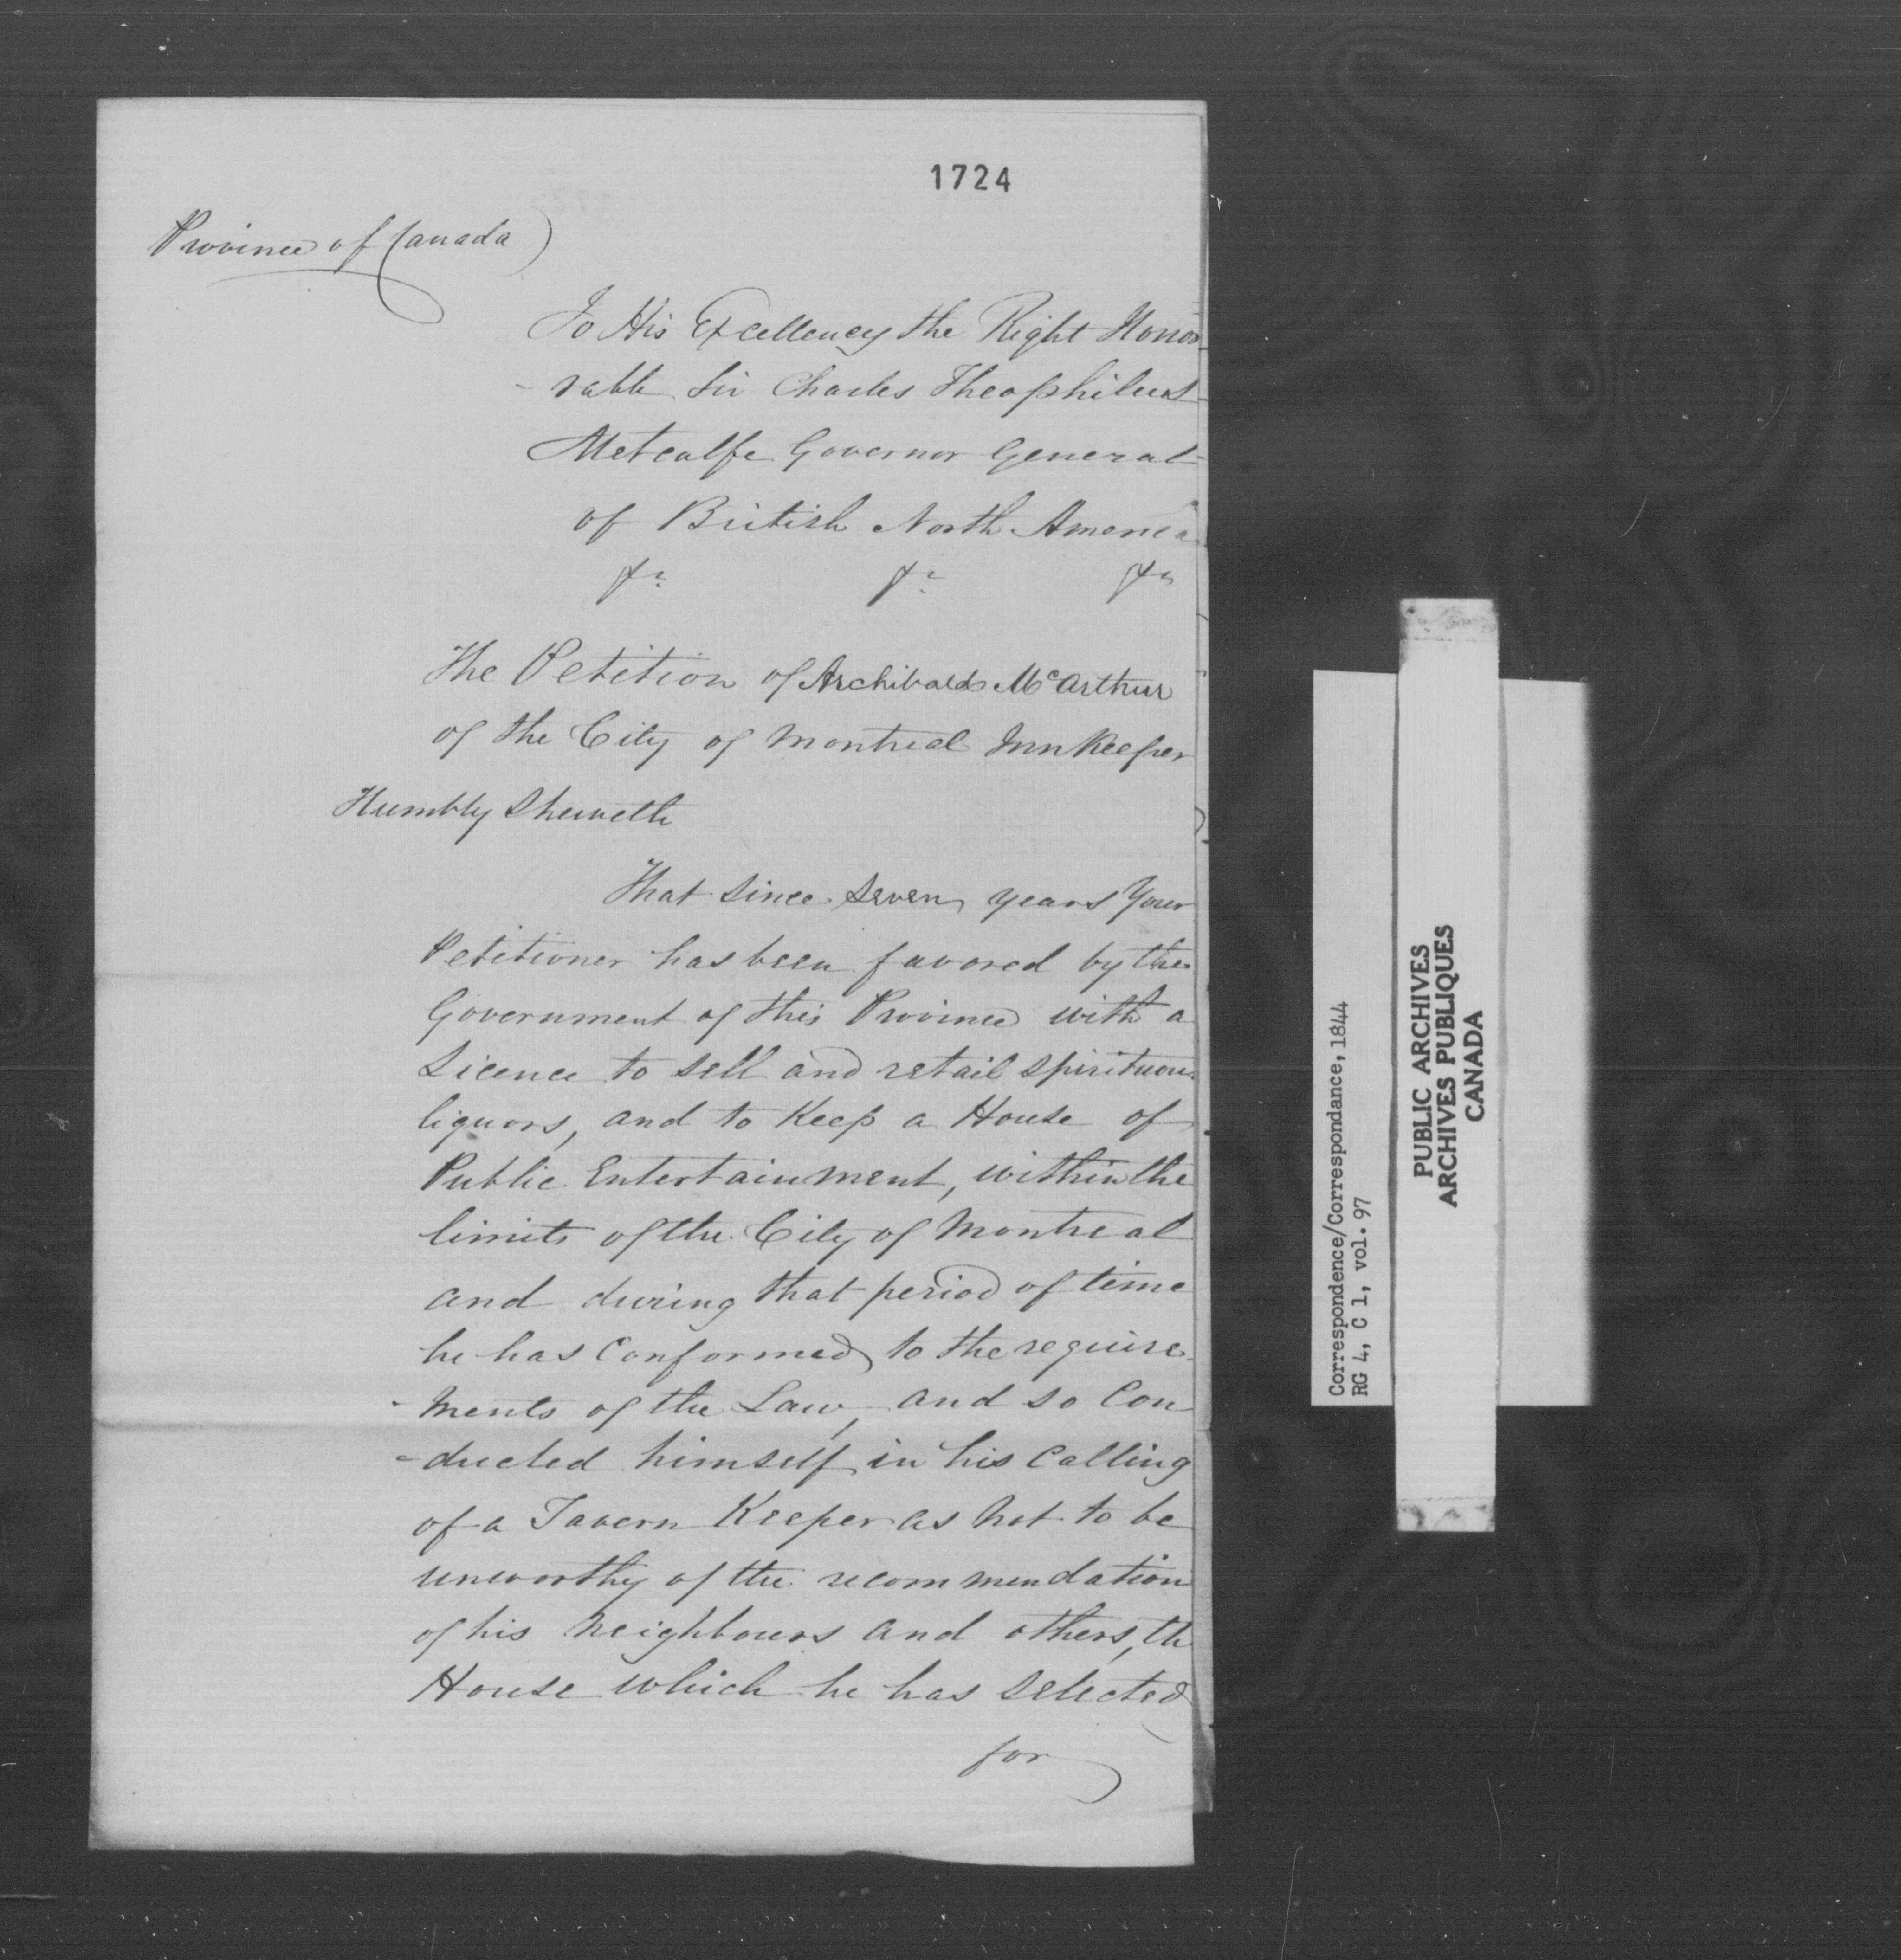 1724
Province of Canada)
To His Excellency the Right Hono
-rable Sir Charles Theophilus
Metcalfe Governor General
of British North America
&c &c &c
The Petition of Archibald McArthur
of the City of Montreal Innkeeper
Humbly Sheweth
That since seven years Your
Petitioner has been favored by the
Government of this Province with a
Licence to sell and retail spirituou
liquors, and to Keep a House of
Public Entertainment, within the
limits of the City of Montreal
and during that period of time
he has Conformed to the require-
-ments of the Law, and so Con
-ducted himself in his Calling
of a Tavern Keeper as not to be
unworthy of the recommendation
of his neighbours and others, th
House which he has selected
for
Correspondence/Correspondance, 1844
RG 4, C 1, vol. 97
PUBLIC ARCHIVES
ARCHIVES PUBLIQUES
CANADA